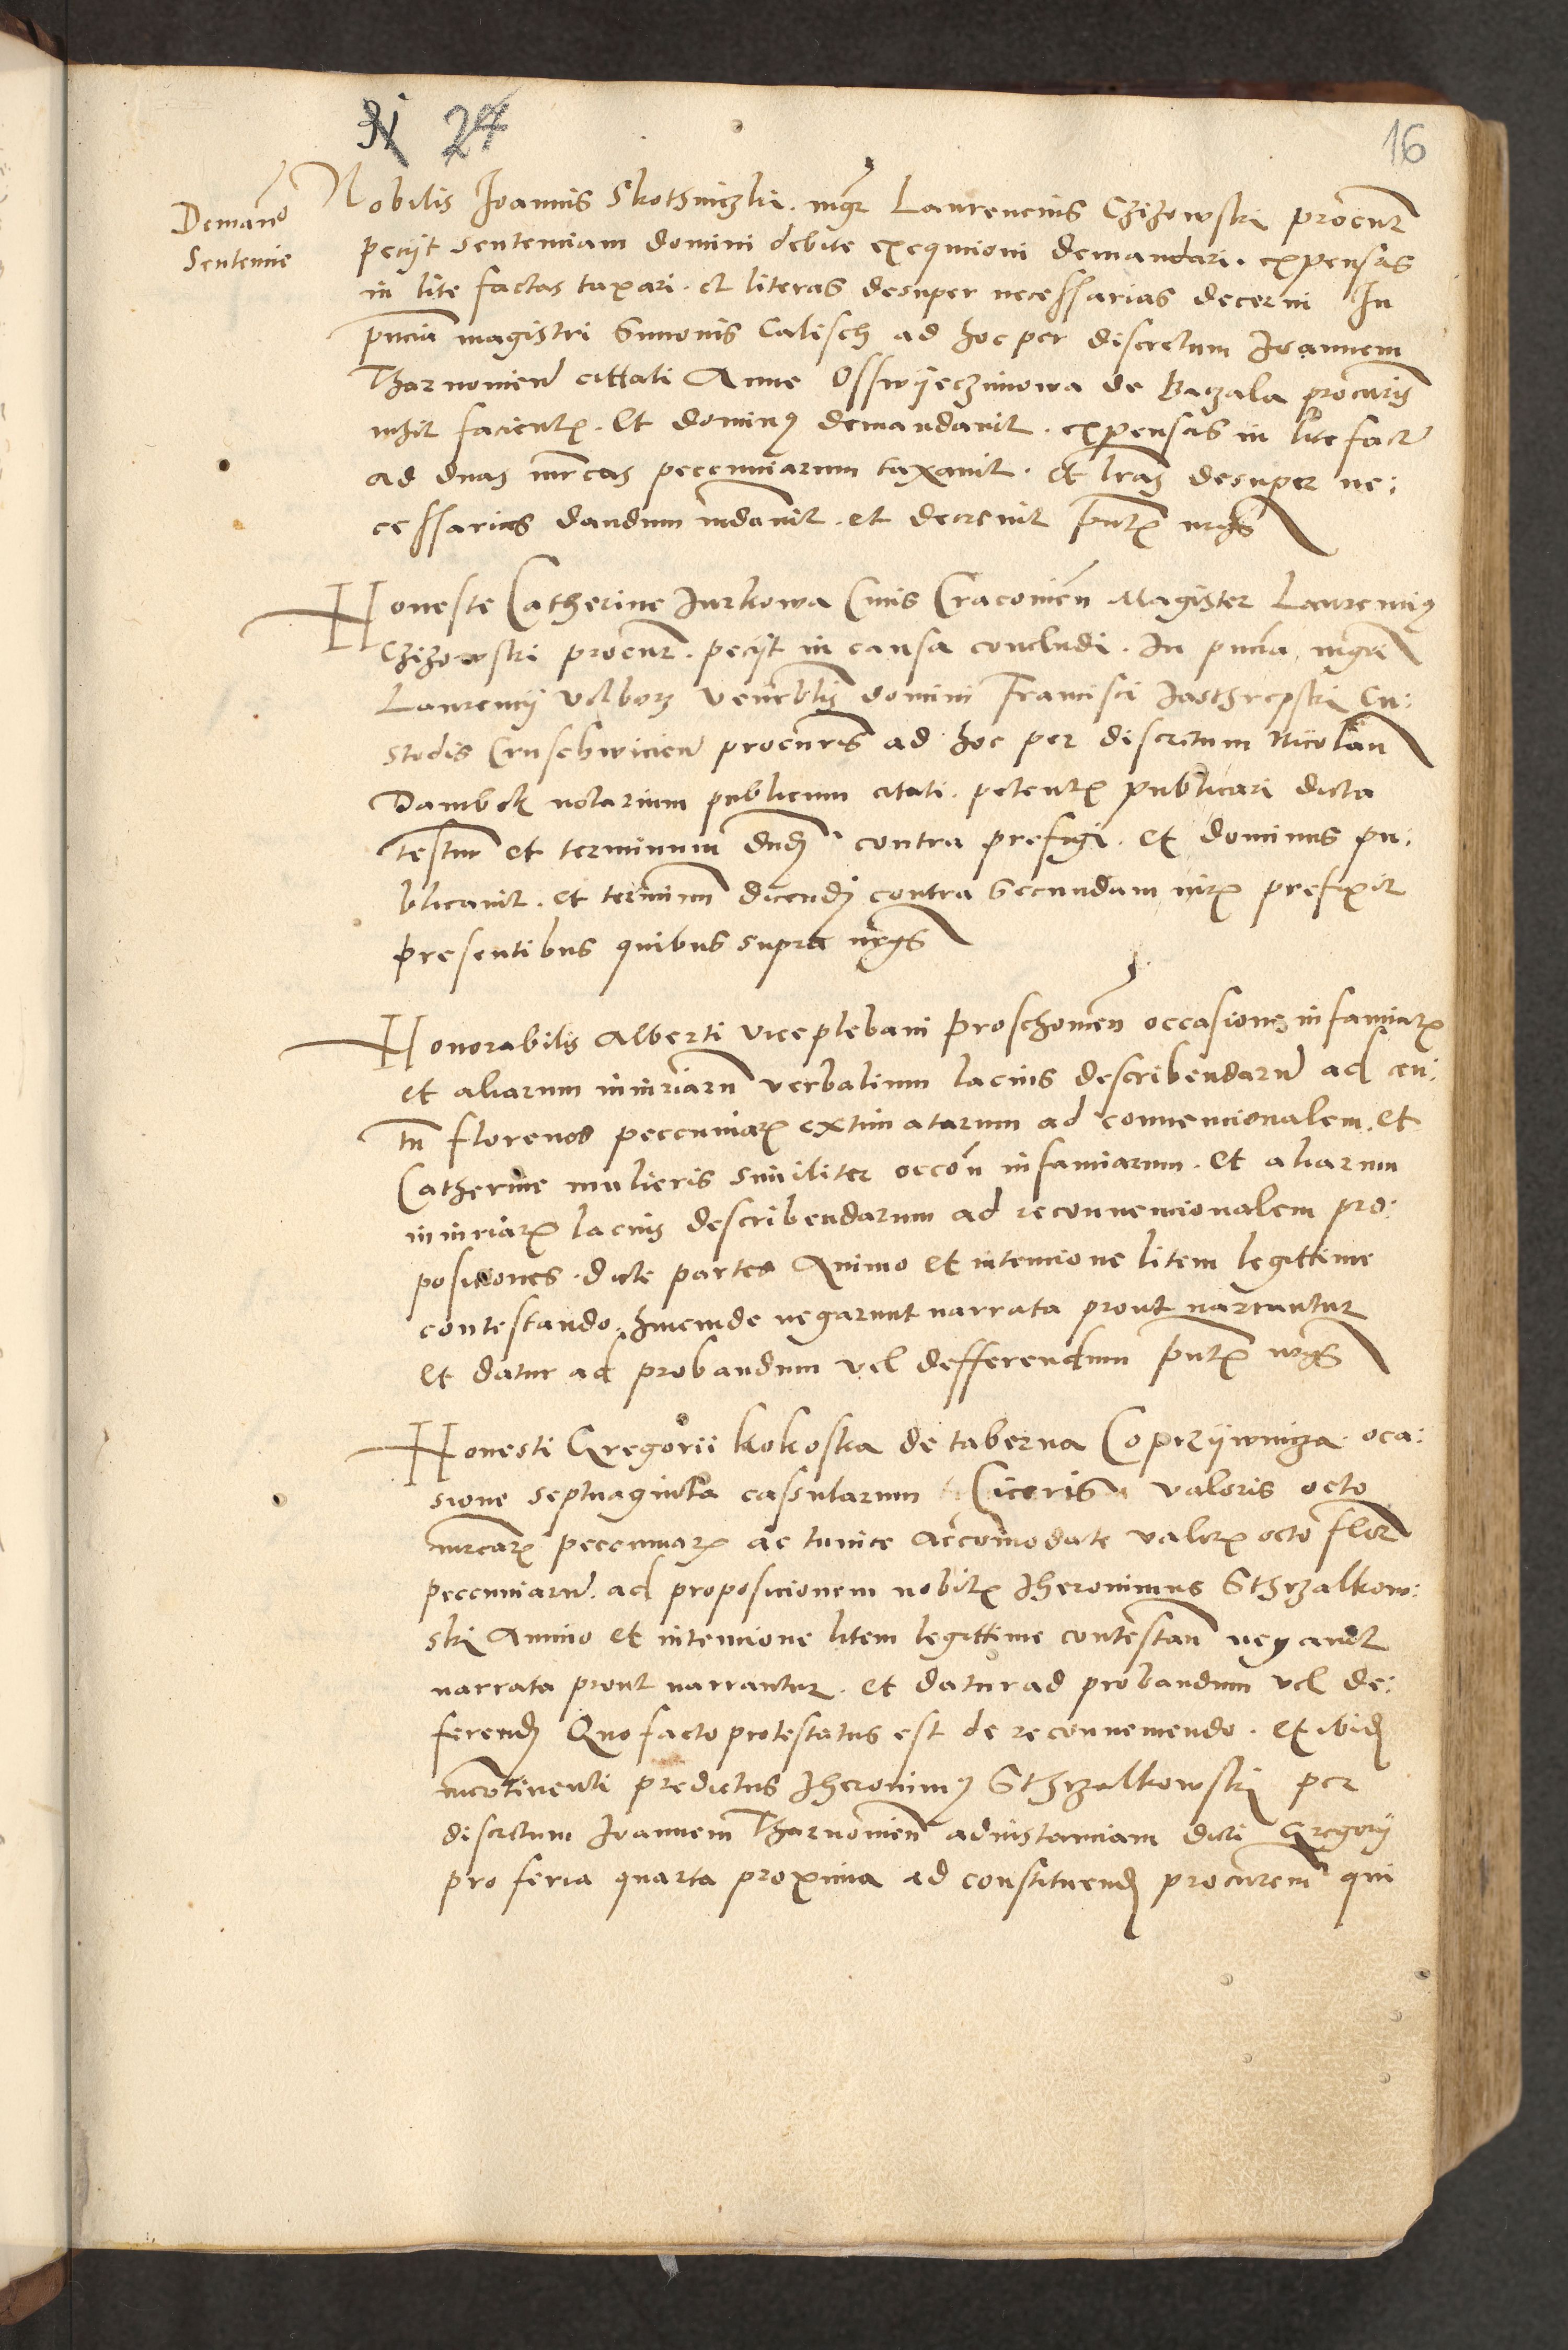 31 24
16
Demand
Sentencie
Nobilis Joannis Skothniczki. mgr Laurencius Czizowski procur
peciit sentenciam domini debite exequucioni demandari. expensas
in lite factas taxari. et literas desuper necessarias decerni In
pncia magistri Simonis Calisch ad hoc per discretum Joannem
Tharnomien cittati Anne Osswijeczimowa de Baczala procuris
nihil facient. Et dominus demandavit. expensas in lite fact
ad duas mrcas peccuniarum taxavit. et lras desuper ne:
cessarias dandum mdavit. et decrevit pntx mgrs
Honeste Catherine Jurkowa Civis Cracovien Magister Laurencius
Czizowski procur. peciit in causa concludi. In pncia mgri
Laurencij Volborz venerblis domini Francisci Jasthrepski Cu:
stodis Crusehwicien procuris ad hoc per discretum Nicolau
Dambek notarium publicum citati. petentx publicari dicta
testiu et terminum dndj contra prefigi. et dominus pu:
blicavit. et terminu dicendj contra secundam iurx prefixit
presentibus quibus supra mrgs
Honorabilis Alberti viceplebani Proschovien occasione infamiarx
et aliarum iniuriaru verbalium lacius describendaru ad cen:
tu florenos peccuniarx extimatarum ad convencionalem. et
Catherine mulieris similiter occon infamiarum. et aliarum
iniuriarx lacius describendarum ad reconvencionalem pro:
posiciones. dicte partes Animo et intencione litem legittime
contestando. hincinde negarunt narrata prout narrantur
et datur ad probandum vel defferendum pntx mgrs
Honesti Gregorii Kokoska de taberna Coprzijwnicza. oca:
sione septuaginta cassularum Ciceris valoris octo
mrcarx peccuniarx ac tunice accomodate valorx octo flor
peccuniaru. ad proposicionem nobilx Jheronimus Sthrzalkow:
ski Animo et intencione litem legittime contestan negavit
narrata prout narrantur. et datur ad probandum vel de:
ferendj Quo facto protestatus est de reconveniendo. et ibidj
incontinenti predictus Jheronimus Sthrzalkowski per
discretum Joannem Tharnovien ad instanciam dicti Gregorij
pro feria quarta proxima ad constituendj procurem qui